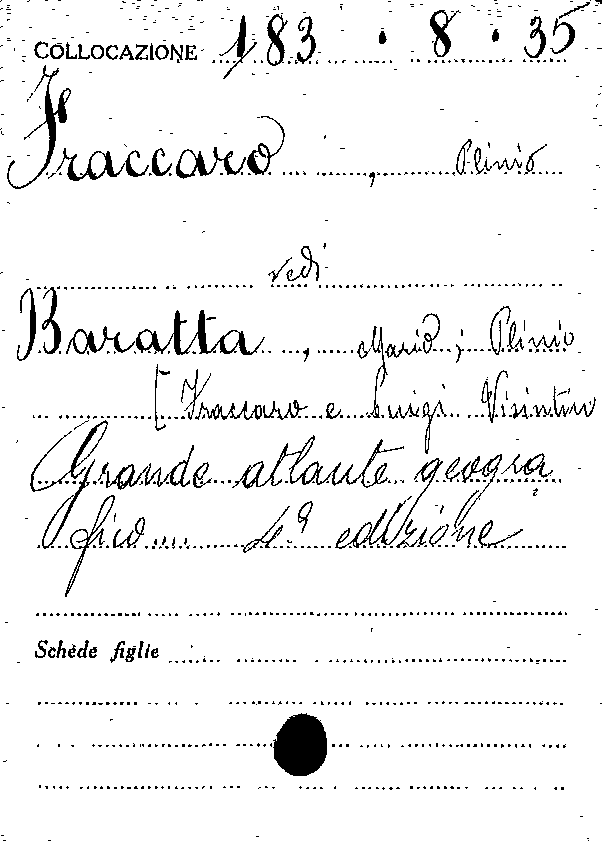 COLLOCAZIONE 183 . 8 . 35
Fraccaro , Plinio
vedi
Baratta , Mario ; Plinio
[Fraccaro e Luigi Visintin
Grande atlante geogra
fico.... 4ª edizione
Schède figlie